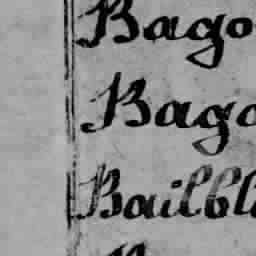 Bago
Bago
Bailbl